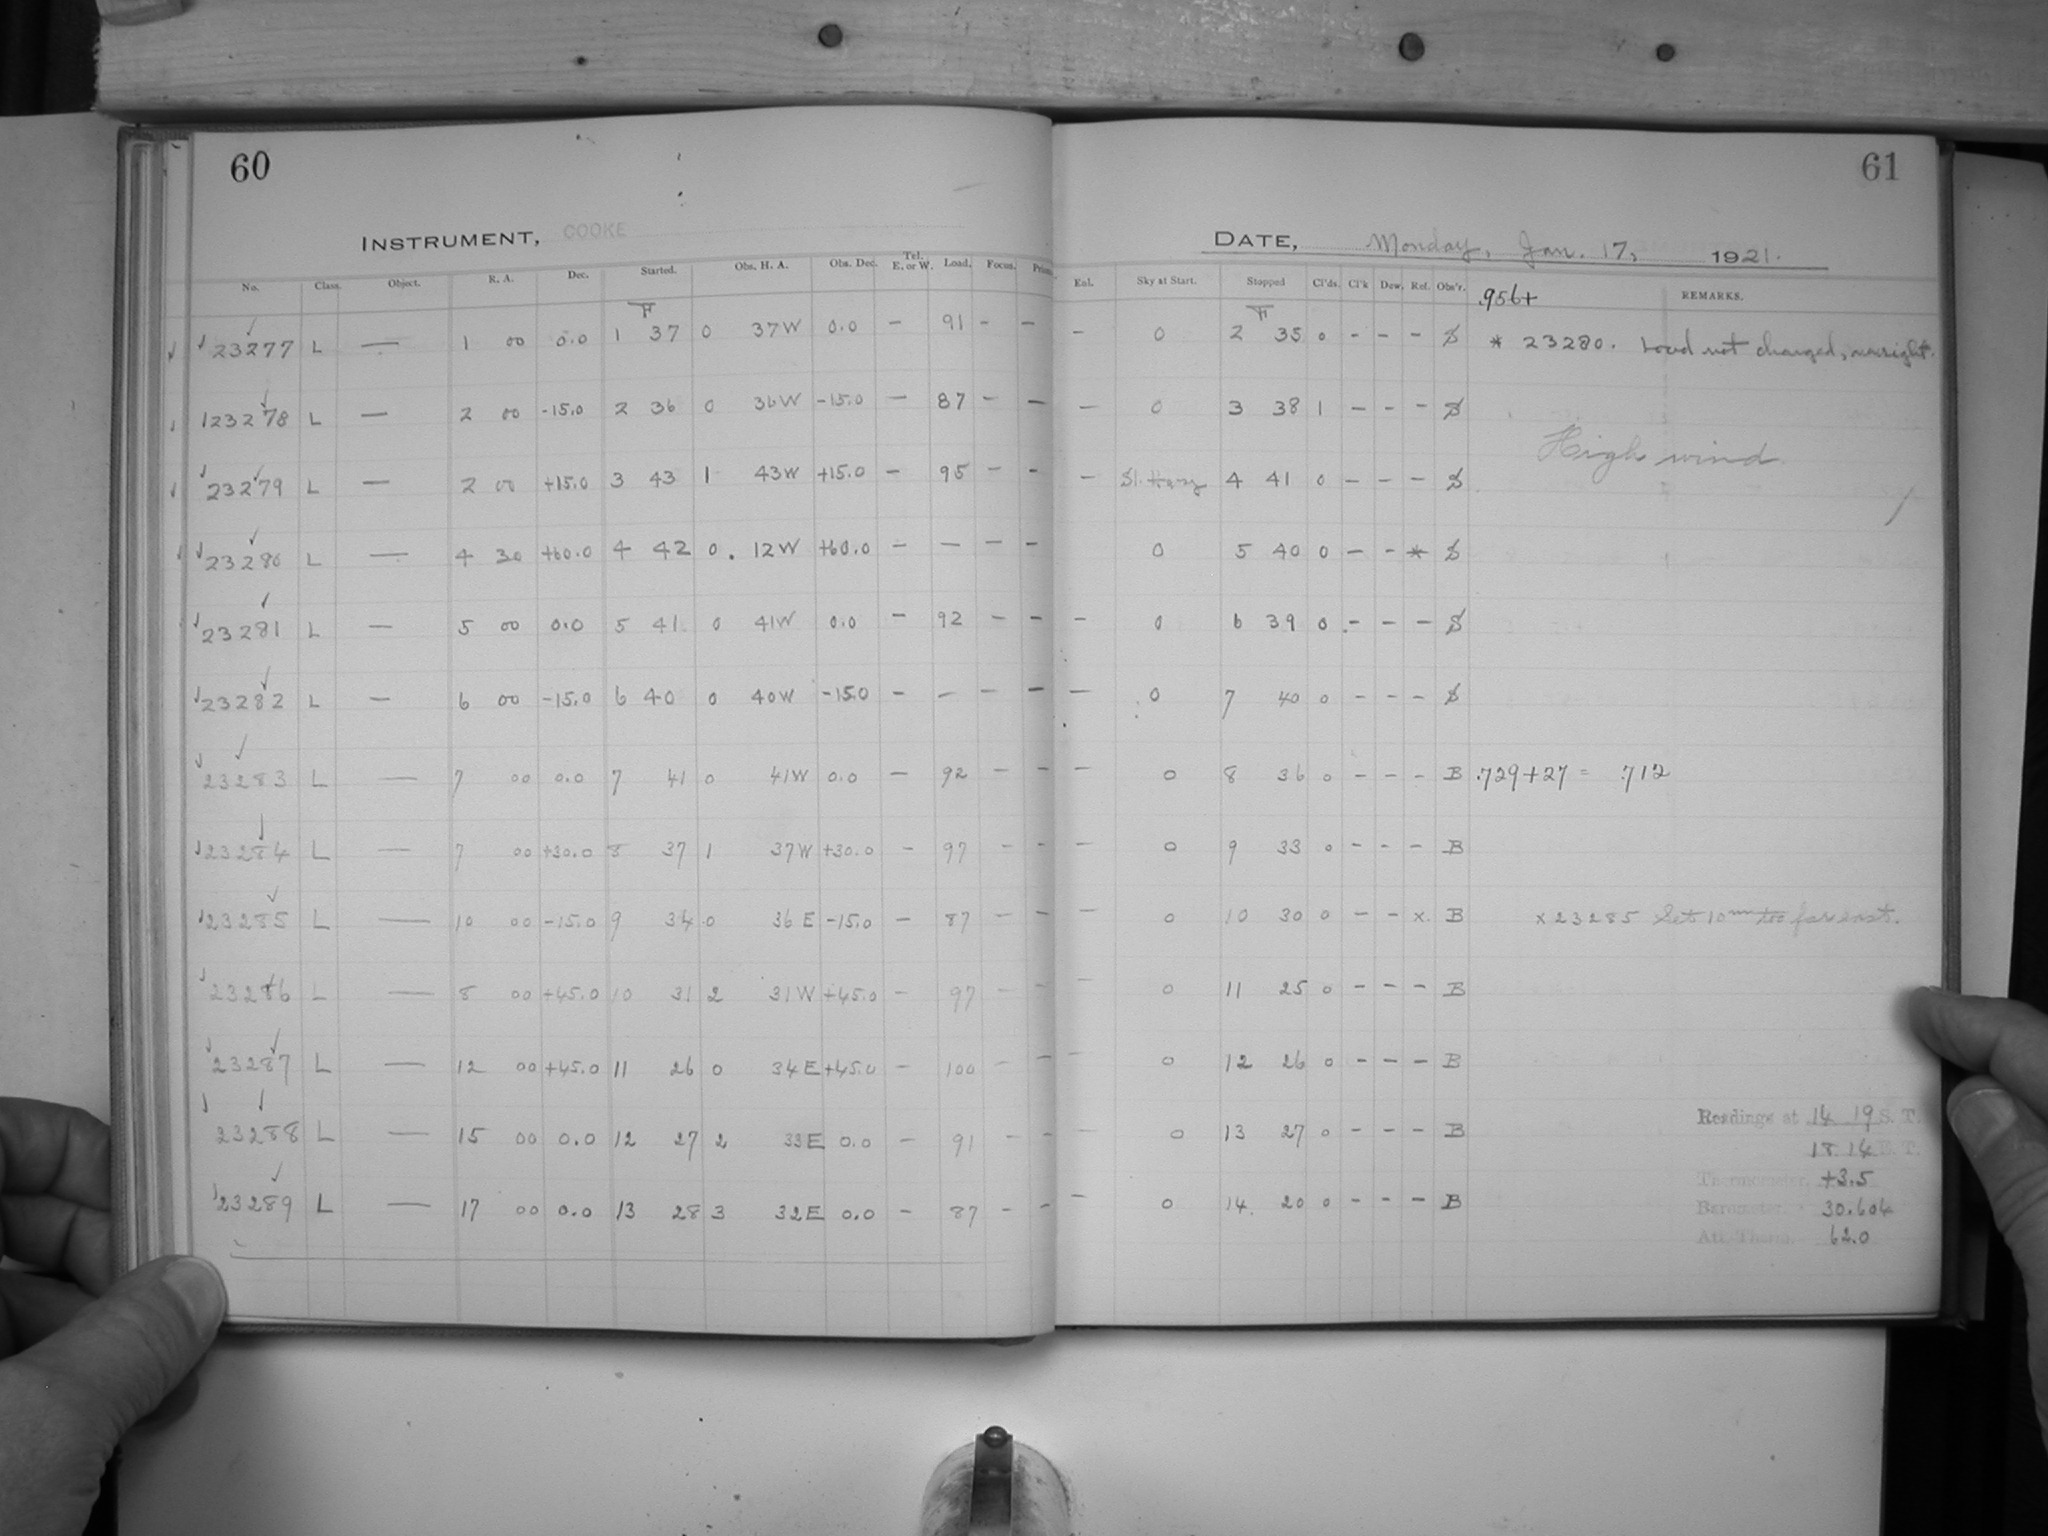 60
61
INSTRUMENT, COOKE
DATE, Monday, Jan. 17, 1921.
No. Class. Object. R. A. Dec. Started. Obs. H. A. Obs. Dec. Tel. E. or W. Load. Focus. Prism. Enl. Sky at Start. Stopped Cl'ds. Cl'k Dew, Rel. Obs'r. REMARKS.
.956+
23277 L — 1 00 0.0 1 37 0 37W 0.0 — 91 - — - 0 2 35 0 - - - S * 23280. Load not changed,
123278 L — 2 00 -15.0 2 36 0 36W -15.0 — 87 - — — 0 3 38 1 - - - S
High wind
23279 L — 2 00 +15.0 3 43 1 43W +15.0 — 95 - - - Sl. Hazy 4 41 0 - - - S
23280 L — 4 30 +60.0 4 42 0. 12W +60.0 — — - - 0 5 40 0 - - * S
23281 L — 5 00 0.0 5 41 0 41W 0.0 — 92 - - - 0 6 39 0 - - - S
23282 L — 6 00 -15.0 6 40 0 40W -15.0 - - - - — 0 7 40 0 - - - S
23283 L — 7 00 0.0 7 41 0 41W 0.0 — 92 - - — 0 8 36 0 - - - B .729+27 = .712
23284 L — 7 00 +30.0 8 37 1 37W +30.0 - 97 - - - 0 9 33 0 - - - B
23285 L — 10 00 -15.0 9 34 0 36 E -15.0 - 87 - - - 0 10 30 0 - - x. B x 23285 Set 10m too far east.
23286 L — 8 00 +45.0 10 31 2 31W +45.0 - 97 - - - 0 11 25 0 - - - B
23287 L — 12 00 +45.0 11 26 0 34E +45.0 - 100 - - - 0 12 26 0 - - - B
23288 L — 15 00 0.0 12 27 2 33E 0.0 - 91 - - - 0 13 27 0 - - - B
23289 L — 17 00 0.0 13 28 3 32E 0.0 - 87 - - - 0 14. 20 0 - - - B
Readings at 14 19 S. T.
18 14 E. T.
Thermometer, +3.5
Barometer, 30.604
Att. Therm. 62.0